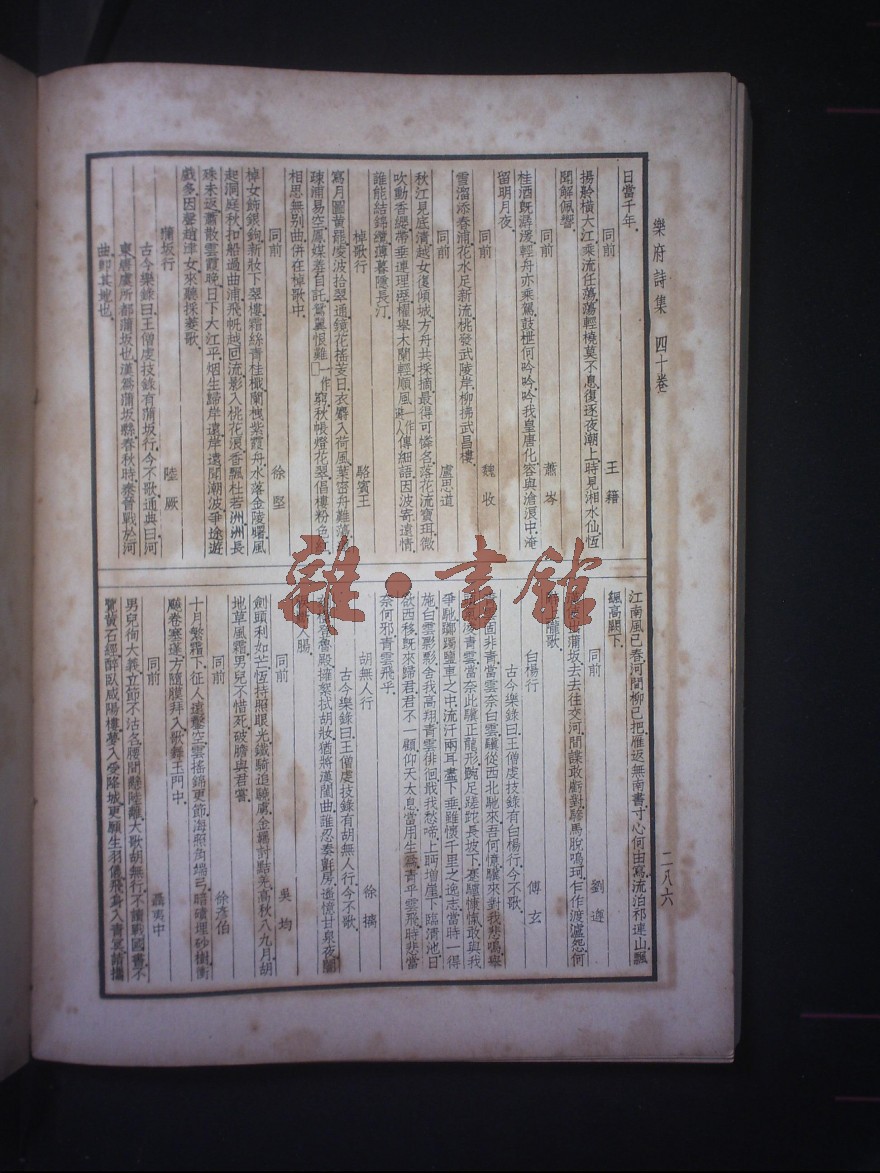 樂府詩集　四十卷
二八六
日當千年.
同前　王　籍
揚舲橫大江.乘流任蕩蕩.輕橈莫不息.復逐夜潮上.時見湘水仙.恆
聞解佩響.
同前　蕭　岑
桂酒旣潺湲.輕舟亦乘駕.鼓枻何吟吟.吟我皇唐化.容與滄浪中.淹
留明月夜.
同前　魏　收
雪溜添春浦.花水足新流.桃發武陵岸.柳拂武昌樓.
同前　盧思道
秋江見底清.越女復傾城.方舟共採摘.最得可憐名.落花流寶珥.微
吹動香纓.帶垂連理溼.櫂舉木蘭輕.順風一作逆人傳細語.因波寄遠情.
誰能結錦纜.薄暮隱長汀.
棹歌行　駱賓王
寫月圖黃罷.凌波拾翠通.鏡花搖芰日.衣麝入荷風.葉密舟難蕩.
疎浦易空.鳳媒羞自託.鴛翼恨難□一作窮.秋帳燈花翠.倡樓粉色
相思無別曲.併在棹歌中.
同前　徐　堅
棹女飾銀鉤.新妝下翠樓.霜絲青桂檝.蘭栧紫霞舟.水落金陵曙.風
起洞庭秋.扣船過曲浦.飛帆越回流.影入桃花浪.香飄杜若洲.洲長
殊未返.蕭散雲霞晚.日下大江平.烟生歸岸遠.岸遠聞潮波.爭途遊
戲多.因聲趙津女.來聽採菱歌.
蒲坂行　陸　厥
古今樂錄曰.王僧虔技錄有蒲坂行.今不歌.通典曰.河
東.唐虞所都蒲坂也.漢爲蒲坂縣.春秋時.秦晉戰於河
曲.卽其地也.
江南風已春.河間柳已把.雁返無南書.寸心何由寫.流泊祁連山.飄
飄高闕下.
同前　劉　遵
蒲坂.去去往交河.間諜敢虧對.驂馬脫鳴珂.乍作渡瀘怨.何
隴歌.
白楊行　傅　玄
古今樂錄曰.王僧虔技錄有白楊行.今不歌.
青雲固非青.當雲奈白雲.驥從西北馳來.吾何憶.驥來對我悲鳴.舉
凌青雲.當奈此驥正龍形.踠足蹉跎長坡下.蹇驢慷慨.敢與我
爭馳.躑躅鹽車之中.流汗兩耳盡下垂.雖懷千里之逸志.當時一得
施.白雲影影.舍我高翔.青雲徘徊.戢我愁啼.上眄增崖.下臨清池.日
欲西移.旣來歸君.君不一顧.仰天太息.當用生爲青乎.雲飛時悲當
奈何邪.青雲飛乎.
胡無人行　徐　摛
古今樂錄曰.王僧虔技錄有胡無人行.今不歌.
登魯殿.擁絮拭胡妝.猶將漢閨曲.誰忍奏氈房.遙憶甘泉夜.闇
人腸.
同前　吳　均
劍頭利如芒.恆持照眼光.鐵騎追驍虜.金羈討黠羌.高秋八九月.胡
地草風霜.男兒不惜死.破膽與君嘗.
同前　徐彥伯
十月繁霜下.征人遠鑿空.雲搖錦更節.海照角端弓.暗磧埋砂樹.衝
飈卷塞蓬.方隨膜拜入.歌舞玉門中.
同前　聶夷中
男兒徇大義.立節不沽名.腰間懸陸離.大歌胡無行.不讀戰國書.不
覽黃石經.醉臥咸陽樓.夢入受降城.更願生羽儀.飛身入青冥.請攜